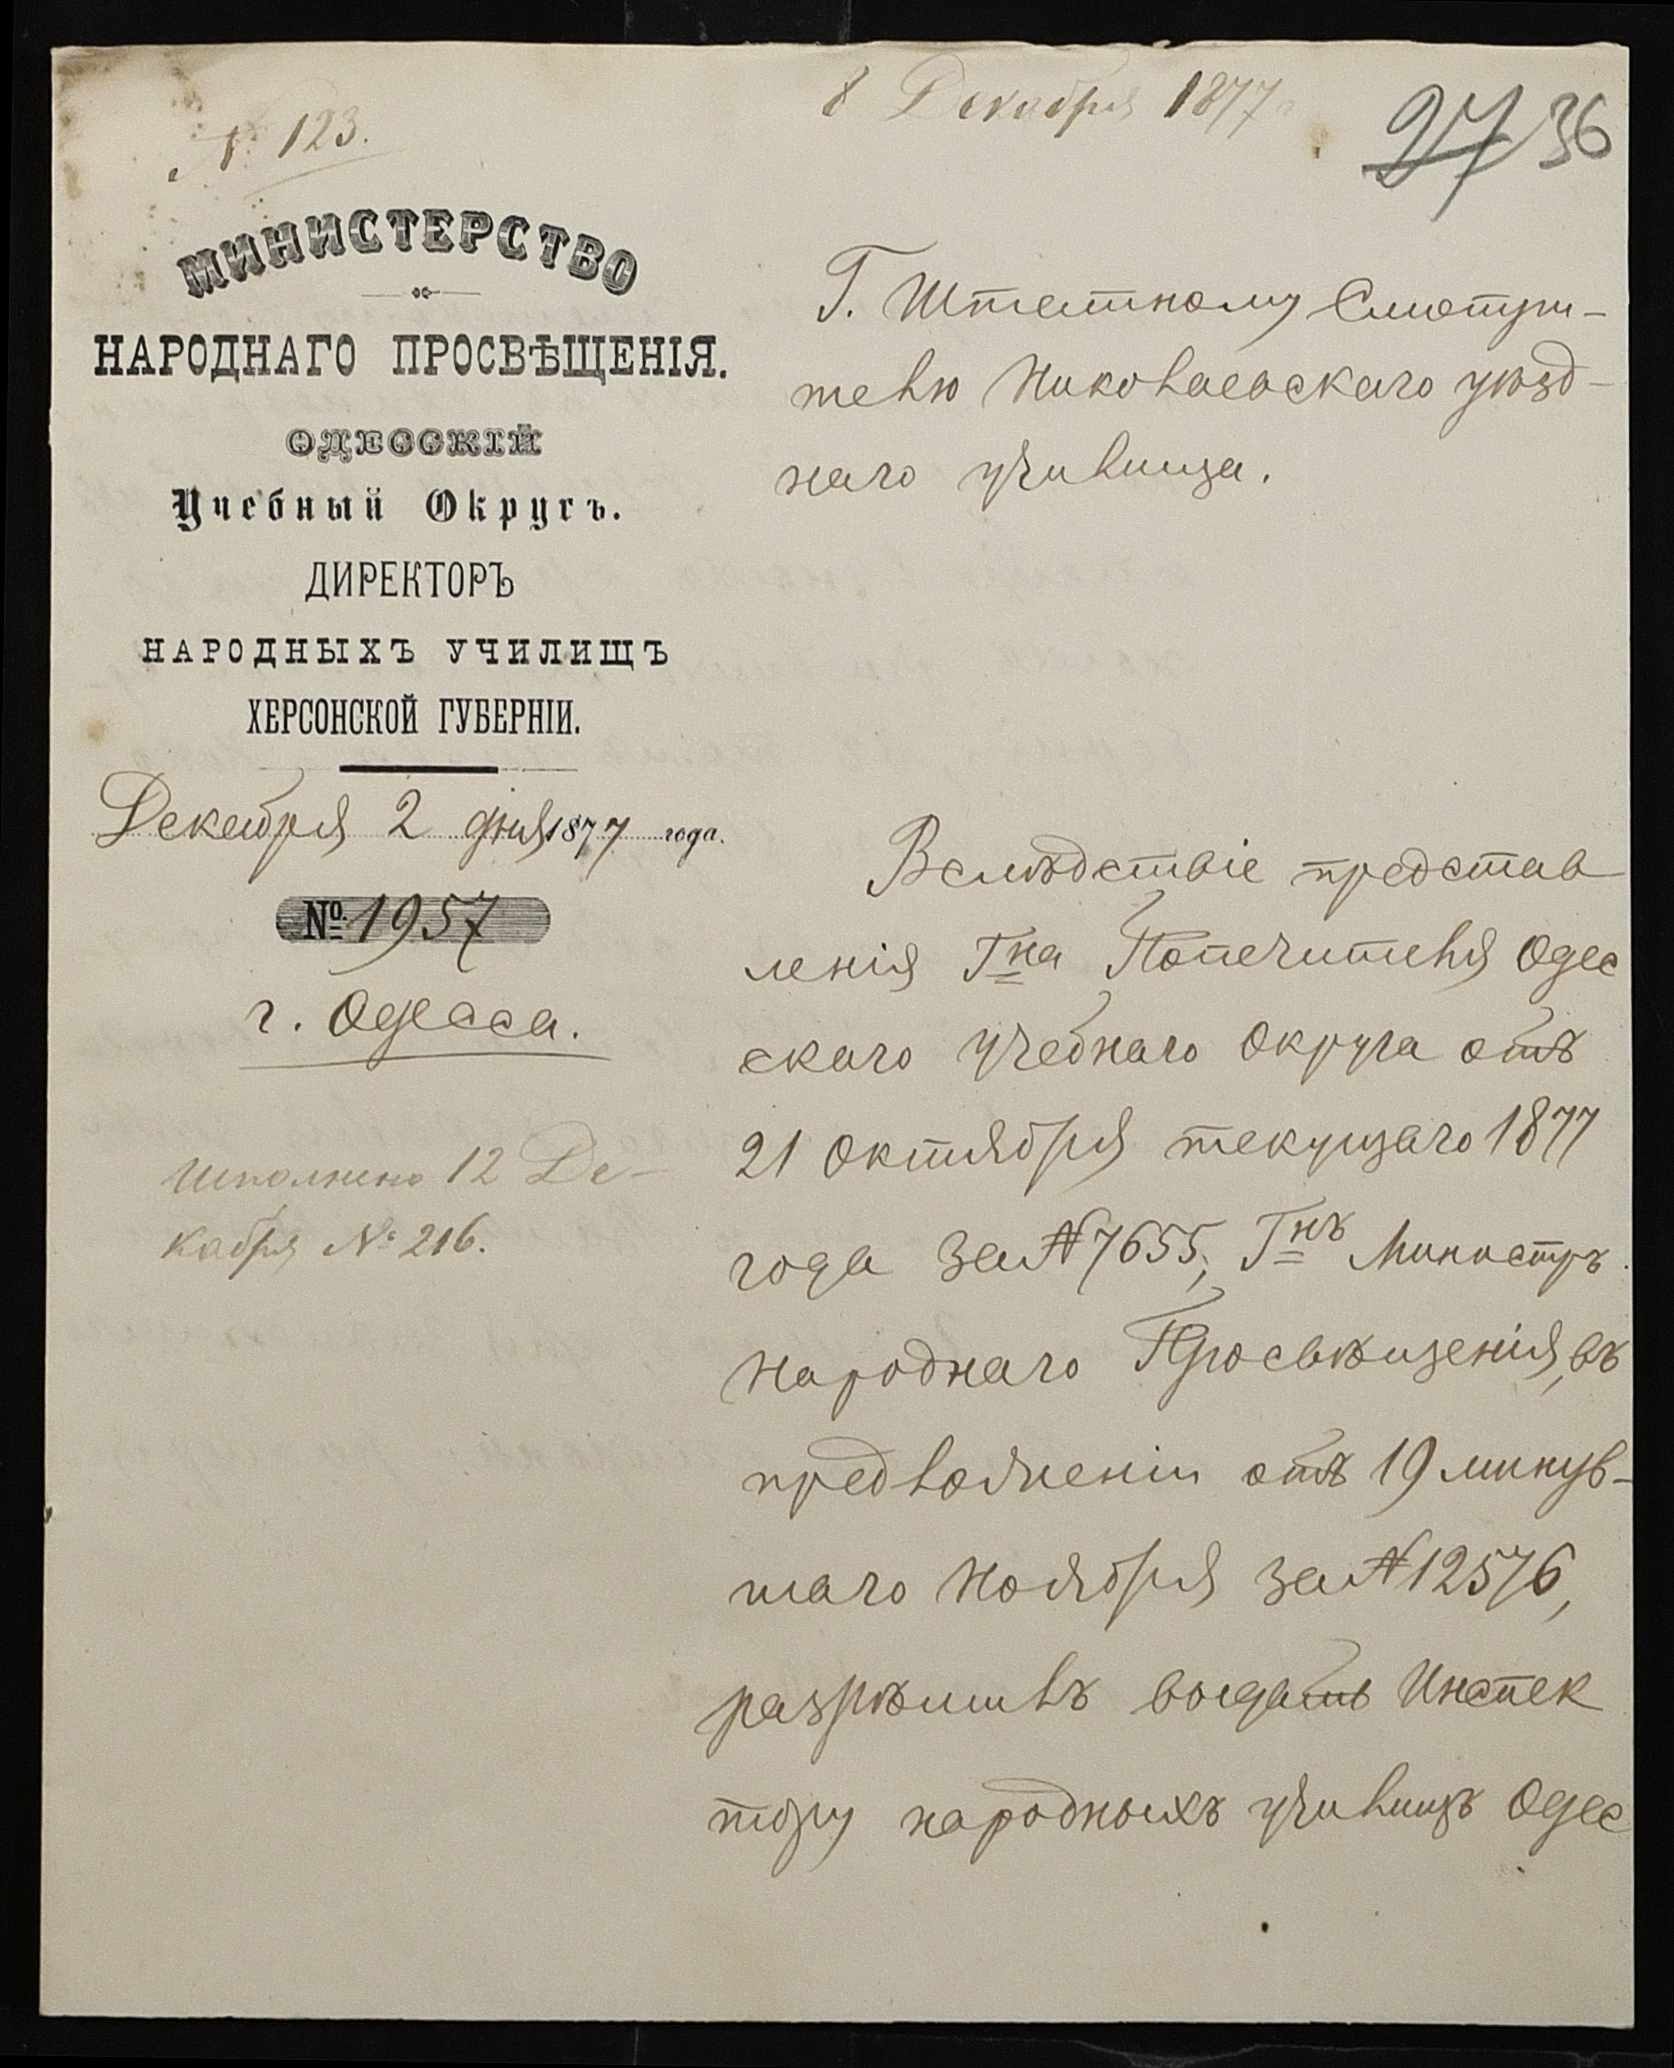 № 123.
8 Декабря 1877
27 36
МИНИСТЕРСТВО
НАРОДНАГО ПРОСВѢЩЕНІЯ.
ОДЕССКІЙ
Учебный Округъ.
ДИРЕКТОРЪ
НАРОДНЫХЪ УЧИЛИЩЪ
ХЕРСОНСКОЙ ГУБЕРНІИ.
Декабря 2 дня 1877 года.
№ 1957
г. Одесса.
Исполнено 12 Де-
кабря № 216.
Г. Штатному Смотри-
телю Николаевскаго уѣзд-
наго училища.
Вслѣдствіе представ
ленія Гна Попечителя Одес
скаго учебнаго Округа отъ
21 Октября текущаго 1877
года за № 7655, Гнъ Министръ
Народнаго Просвѣщенія, въ
предложеніи отъ 19 минув-
шаго Ноября за № 12576,
разрѣшилъ выдать Инспек
тору народныхъ училищъ Одес